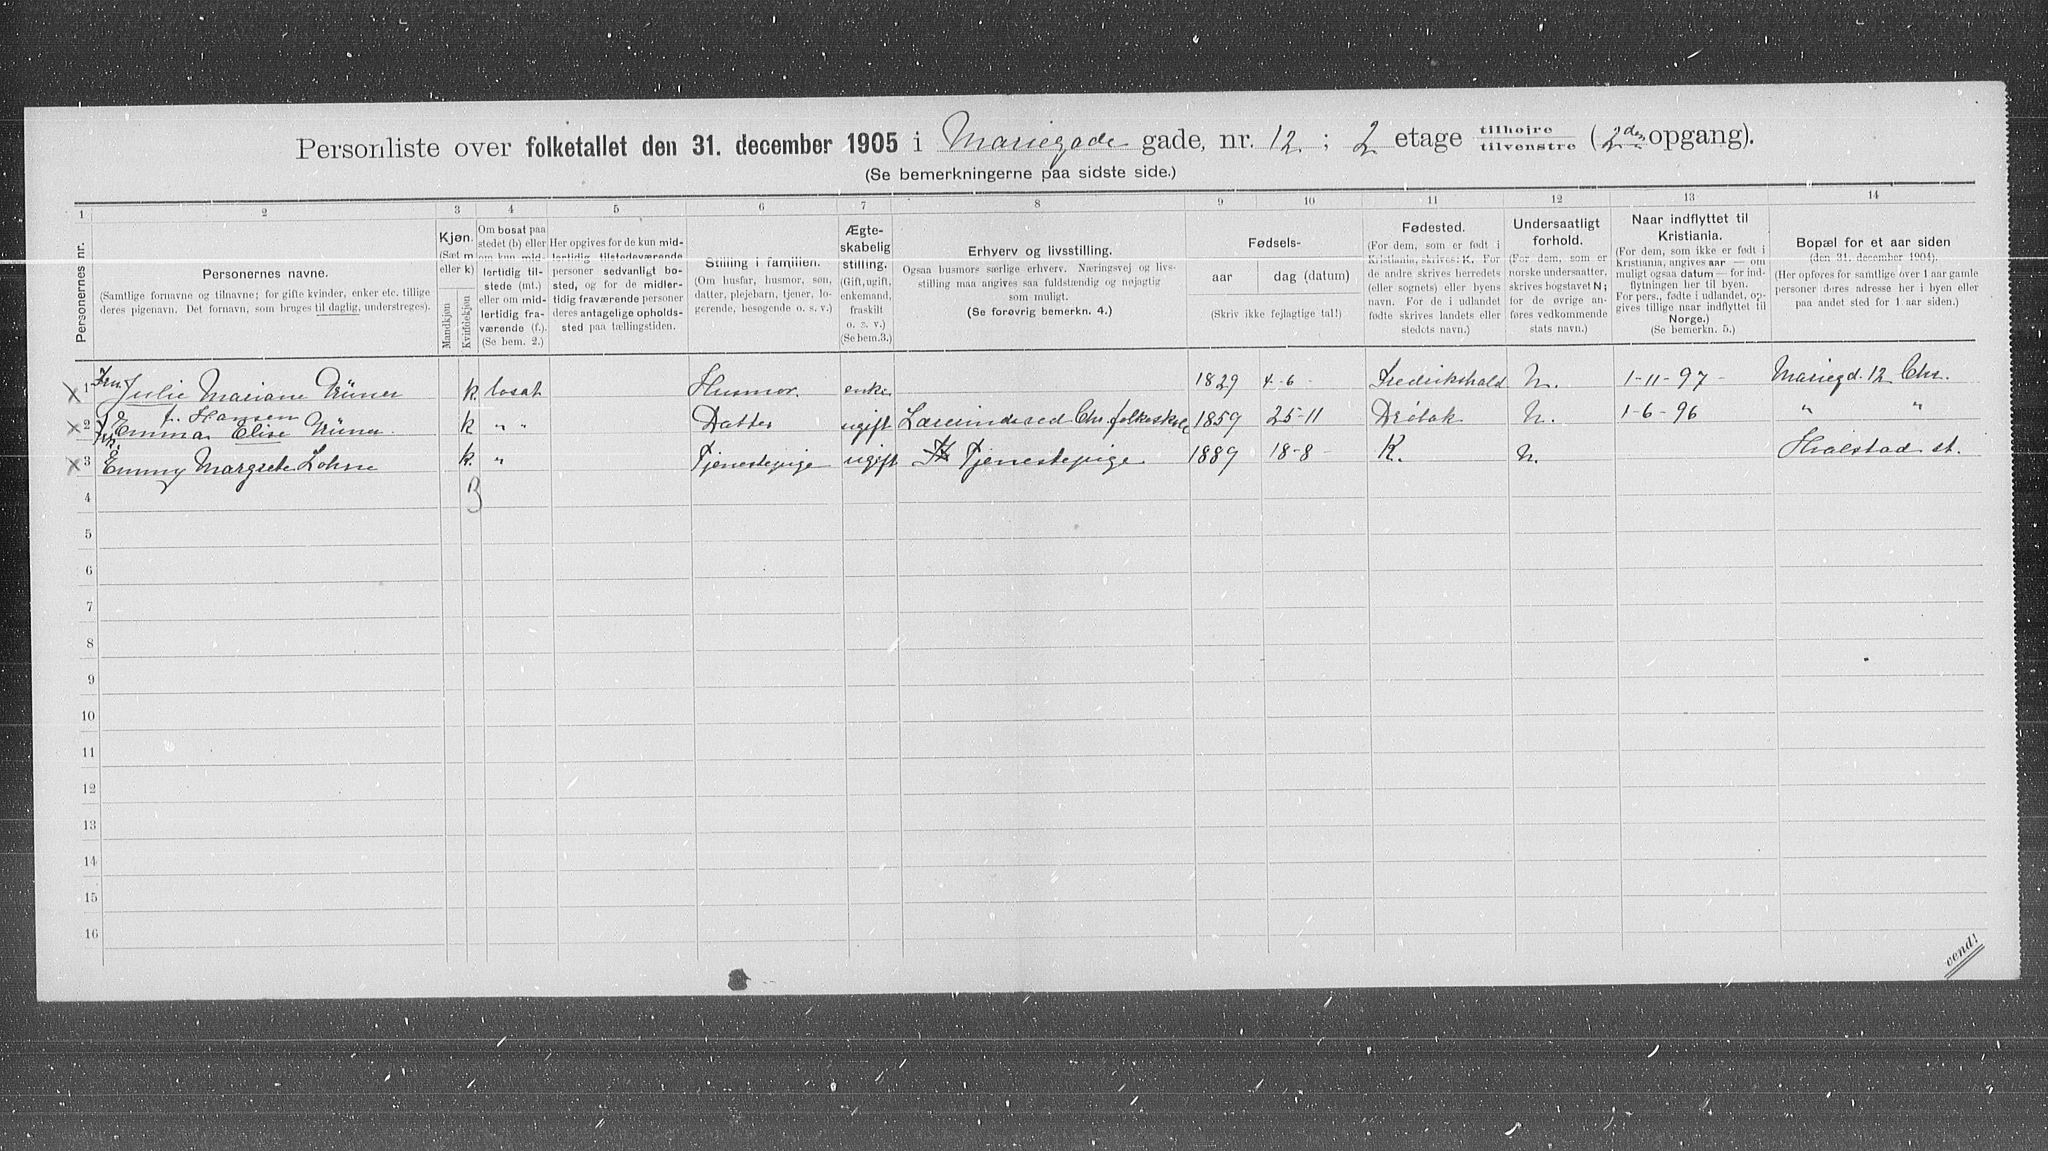 Personliste over folketallet den 31. december 1905 i Mariegade gade, nr. 12 ; 2 etage tilhøjre tilvenstre (2den opgang).
(Se bemerkningerne paa sidste side.)
1 2 3 4 5 6 7 8 9 10 11 12 13 14
Personernes nr.
Personernes navne.
(Samtlige fornavne og tilnavne; for gifte kvinder, enker etc. tillige
deres pigenavn. Det fornavn, som bruges til daglig, understreges).
Kjøn.
(Sæt m
eller k)
Mandkjøn
Kvindekjøn
Om bosat paa
stedet (b) eller
om kun mid-
lertidig til-
stede (mt.)
eller om mid-
lertidig fra-
værende (f.).
(Se bem. 2.)
Her opgives for de kun mid-
lertidig tilstedeværende
personer sedvanligt bo-
sted, og for de midler-
tidig fraværende personer
deres antagelige opholds-
sted paa tællingstiden.
Stilling i familien.
(Om husfar, husmor, søn,
datter, plejebarn, tjener, lo-
gerende, besøgende o. s. v.)
Ægte-
skabelig
stilling.
(Gift, ugift,
enkemand,
fraskilt
o. s. v.)
(Se bem.3.)
Erhverv og livsstilling.
Ogsaa husmors særlige erhverv. Næringsvej og livs-
stilling maa angives saa fuldstændig og nøjagtig
som muligt.
(Se forøvrig bemerkn. 4.)
Fødsels-
aar dag (datum)
(Skriv ikke fejlagtige tal!)
Fødested.
(For dem, som er født i
Kristiania, skrives: K. For
de andre skrives herredets
(eller sognets) eller byens
navn. For de i udlandet
fødte skrives landets eller
stedets navn.)
Undersaatligt
forhold.
(For dem, som er
norske undersaatter,
skrives bogstavet N;
for de øvrige an-
føres vedkommende
stats navn.)
Naar indflyttet til
Kristiania.
(For dem, som ikke er født i
Kristiania, angives aar — om
muligt ogsaa datum — for ind-
flytningen her til byen.
For pers., fødte i udlandet, op-
gives tillige naar indflyttet til
Norge.)
(Se bemerkn. 5.)
Bopæl for et aar siden
(den 31. december 1904).
(Her opføres for samtlige over 1 aar gamle
personer deres adresse her i byen eller
paa andet sted for 1 aar siden.)
x 1 Fru Julie Mariane Grüner k. bosat Husmor. enke 1829 4-6 Fredrikshald N. 1-11-97 Mariegd. 12 Chr.
f. Hansen
x 2 Emma Elise Grüner. k " " Datter ugift Lærerinde ved Chr. folkeskole 1859 25-11 Drøbak N. 1-6-96 " "
x 3 Emmy Margrete Lohne k. " Tjenestepige ugift Tjenestepige 1889 18-8 K. N. Hvalstad st.
4 3
5
6
7
8
9
10
11
12
13
14
15
16
vend!